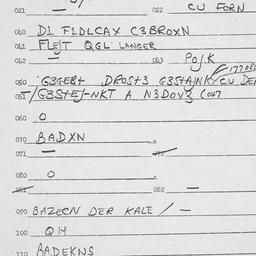 021 — 022 CU FORN
040 D1 F1DLCAX C3BROXN
041 FLEJT QGL LANGER
042 — 043 POJK
050 G3GEBT DROST3 G3STAJNK/CU DEN
051 -/G3STEJ-NKT A N3DOV3 (047
060 O
070 BADXN
071 — 072
080 O
081 — 082 —
090 BAZECN DER KALE / —
100 QH
110 BADEKNS